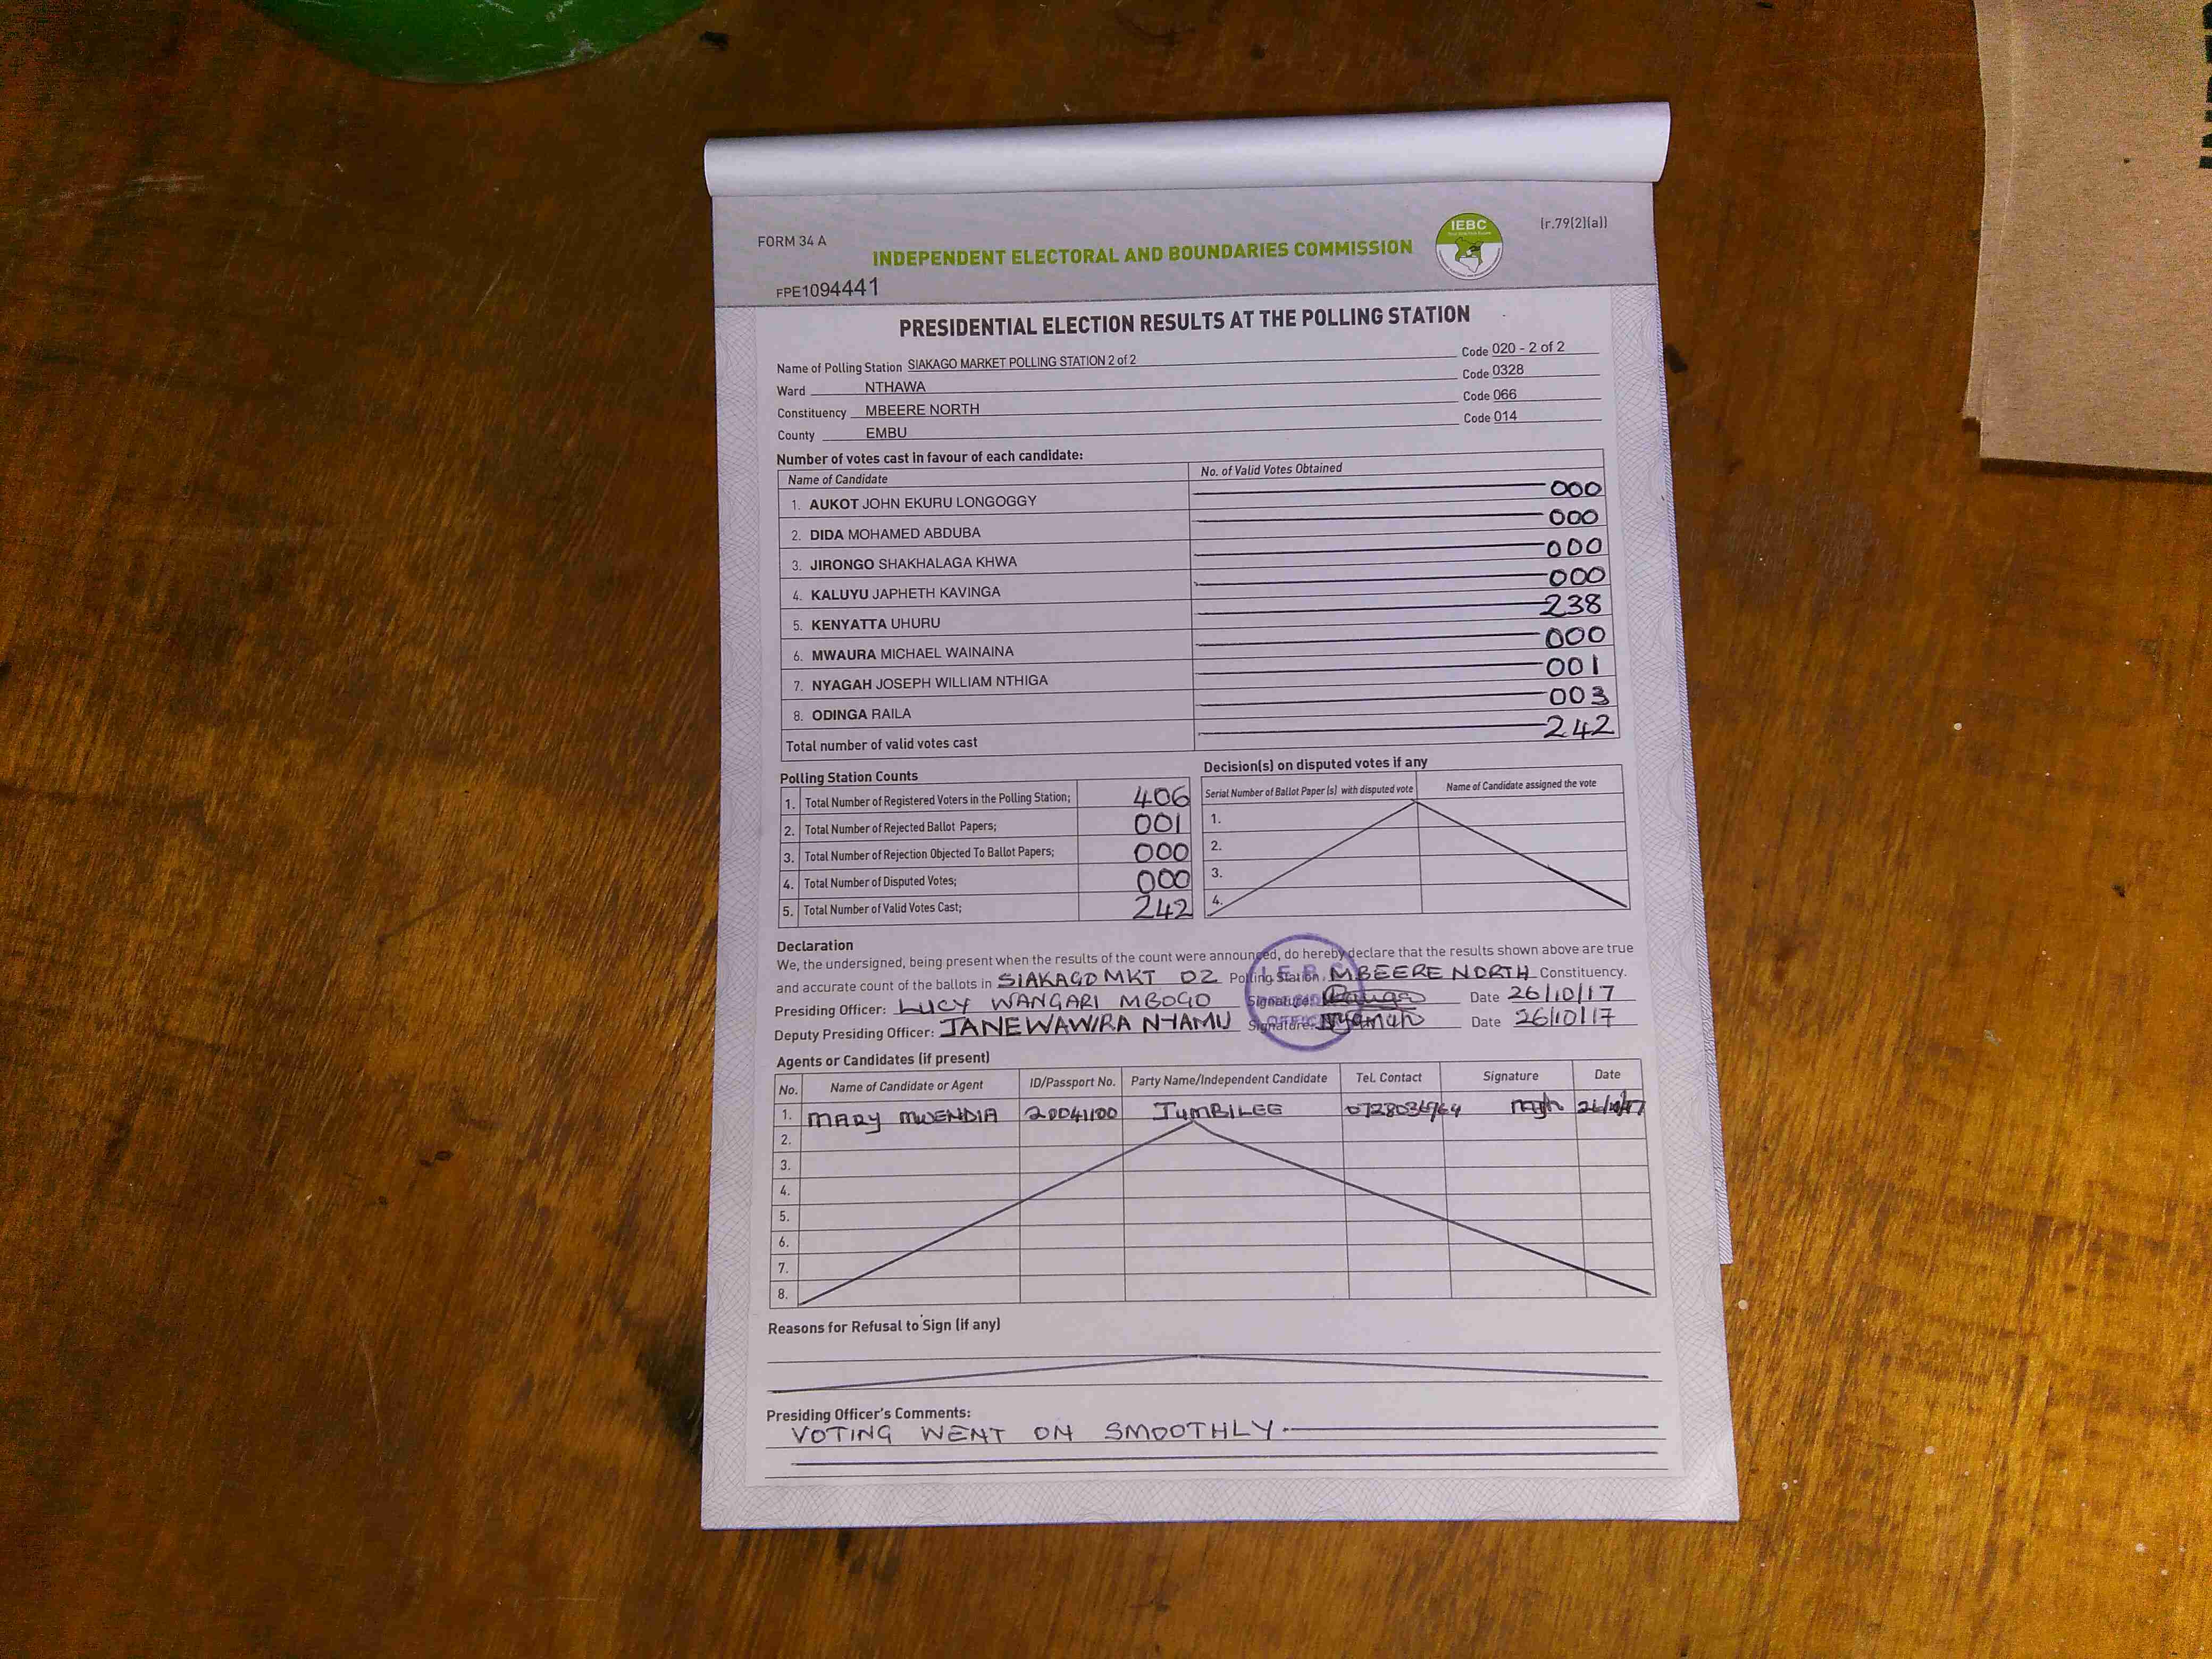 FORM 34 A
INDEPENDENT ELECTORAL AND BOUNDARIES COMMISSION
IEBC
(r.79(2)(a))
FPE1094441
PRESIDENTIAL ELECTION RESULTS AT THE POLLING STATION
Name of Polling Station SIAKAGO MARKET POLLING STATION 2 of 2 Code 020 - 2 of 2
Ward NTHAWA Code 0328
Constituency MBEERE NORTH Code 066
County EMBU Code 014
Number of votes cast in favour of each candidate:
Name of Candidate No. of Valid Votes Obtained
1. AUKOT JOHN EKURU LONGOGGY 000
2. DIDA MOHAMED ABDUBA 000
3. JIRONGO SHAKHALAGA KHWA 000
4. KALUYU JAPHETH KAVINGA 000
5. KENYATTA UHURU 238
6. MWAURA MICHAEL WAINAINA 000
7. NYAGAH JOSEPH WILLIAM NTHIGA 001
8. ODINGA RAILA 003
Total number of valid votes cast 242
Polling Station Counts
1. Total Number of Registered Voters in the Polling Station; 406
2. Total Number of Rejected Ballot Papers; 001
3. Total Number of Rejection Objected To Ballot Papers; 000
4. Total Number of Disputed Votes; 000
5. Total Number of Valid Votes Cast; 242
Decision(s) on disputed votes if any
Serial Number of Ballot Paper (s) with disputed vote Name of Candidate assigned the vote
1.
2.
3.
4.
Declaration
We, the undersigned, being present when the results of the count were announced, do hereby declare that the results shown above are true
and accurate count of the ballots in SIAKAGO MKT 02 Polling Station, MBEERE NORTH Constituency.
Presiding Officer: LUCY WANGARI MBOGO Signature: Date 26/10/17
Deputy Presiding Officer: JANE WAWIRA NYAMU Signature: Nyamu Date 26/10/17
Agents or Candidates (if present)
No. Name of Candidate or Agent ID/Passport No. Party Name/Independent Candidate Tel. Contact Signature Date
1. MARY MWENDIA 20041100 JUMBILEE 26/10/17
2.
3.
4.
5.
6.
7.
8.
Reasons for Refusal to Sign (if any)
Presiding Officer's Comments:
VOTING WENT ON SMOOTHLY.